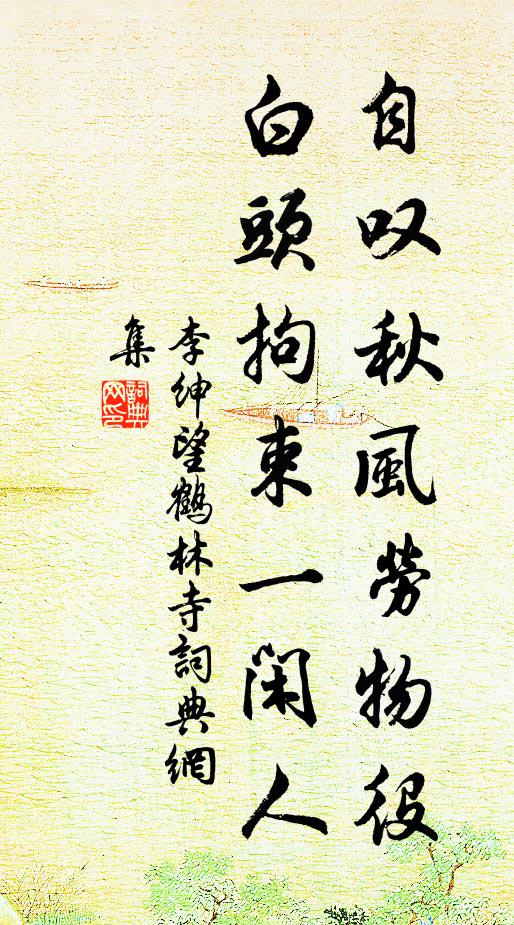 自叹秋風勞物役
白頭拘束一閑人
李紳望鶴林寺詞典網
集
詞典
网印